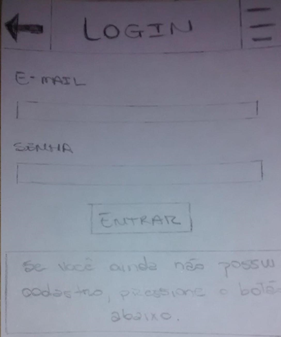 LOGIN
E-MAIL
SENHA
ENTRAR
Se você ainda não possui
cadastro, pressione o botão
abaixo.